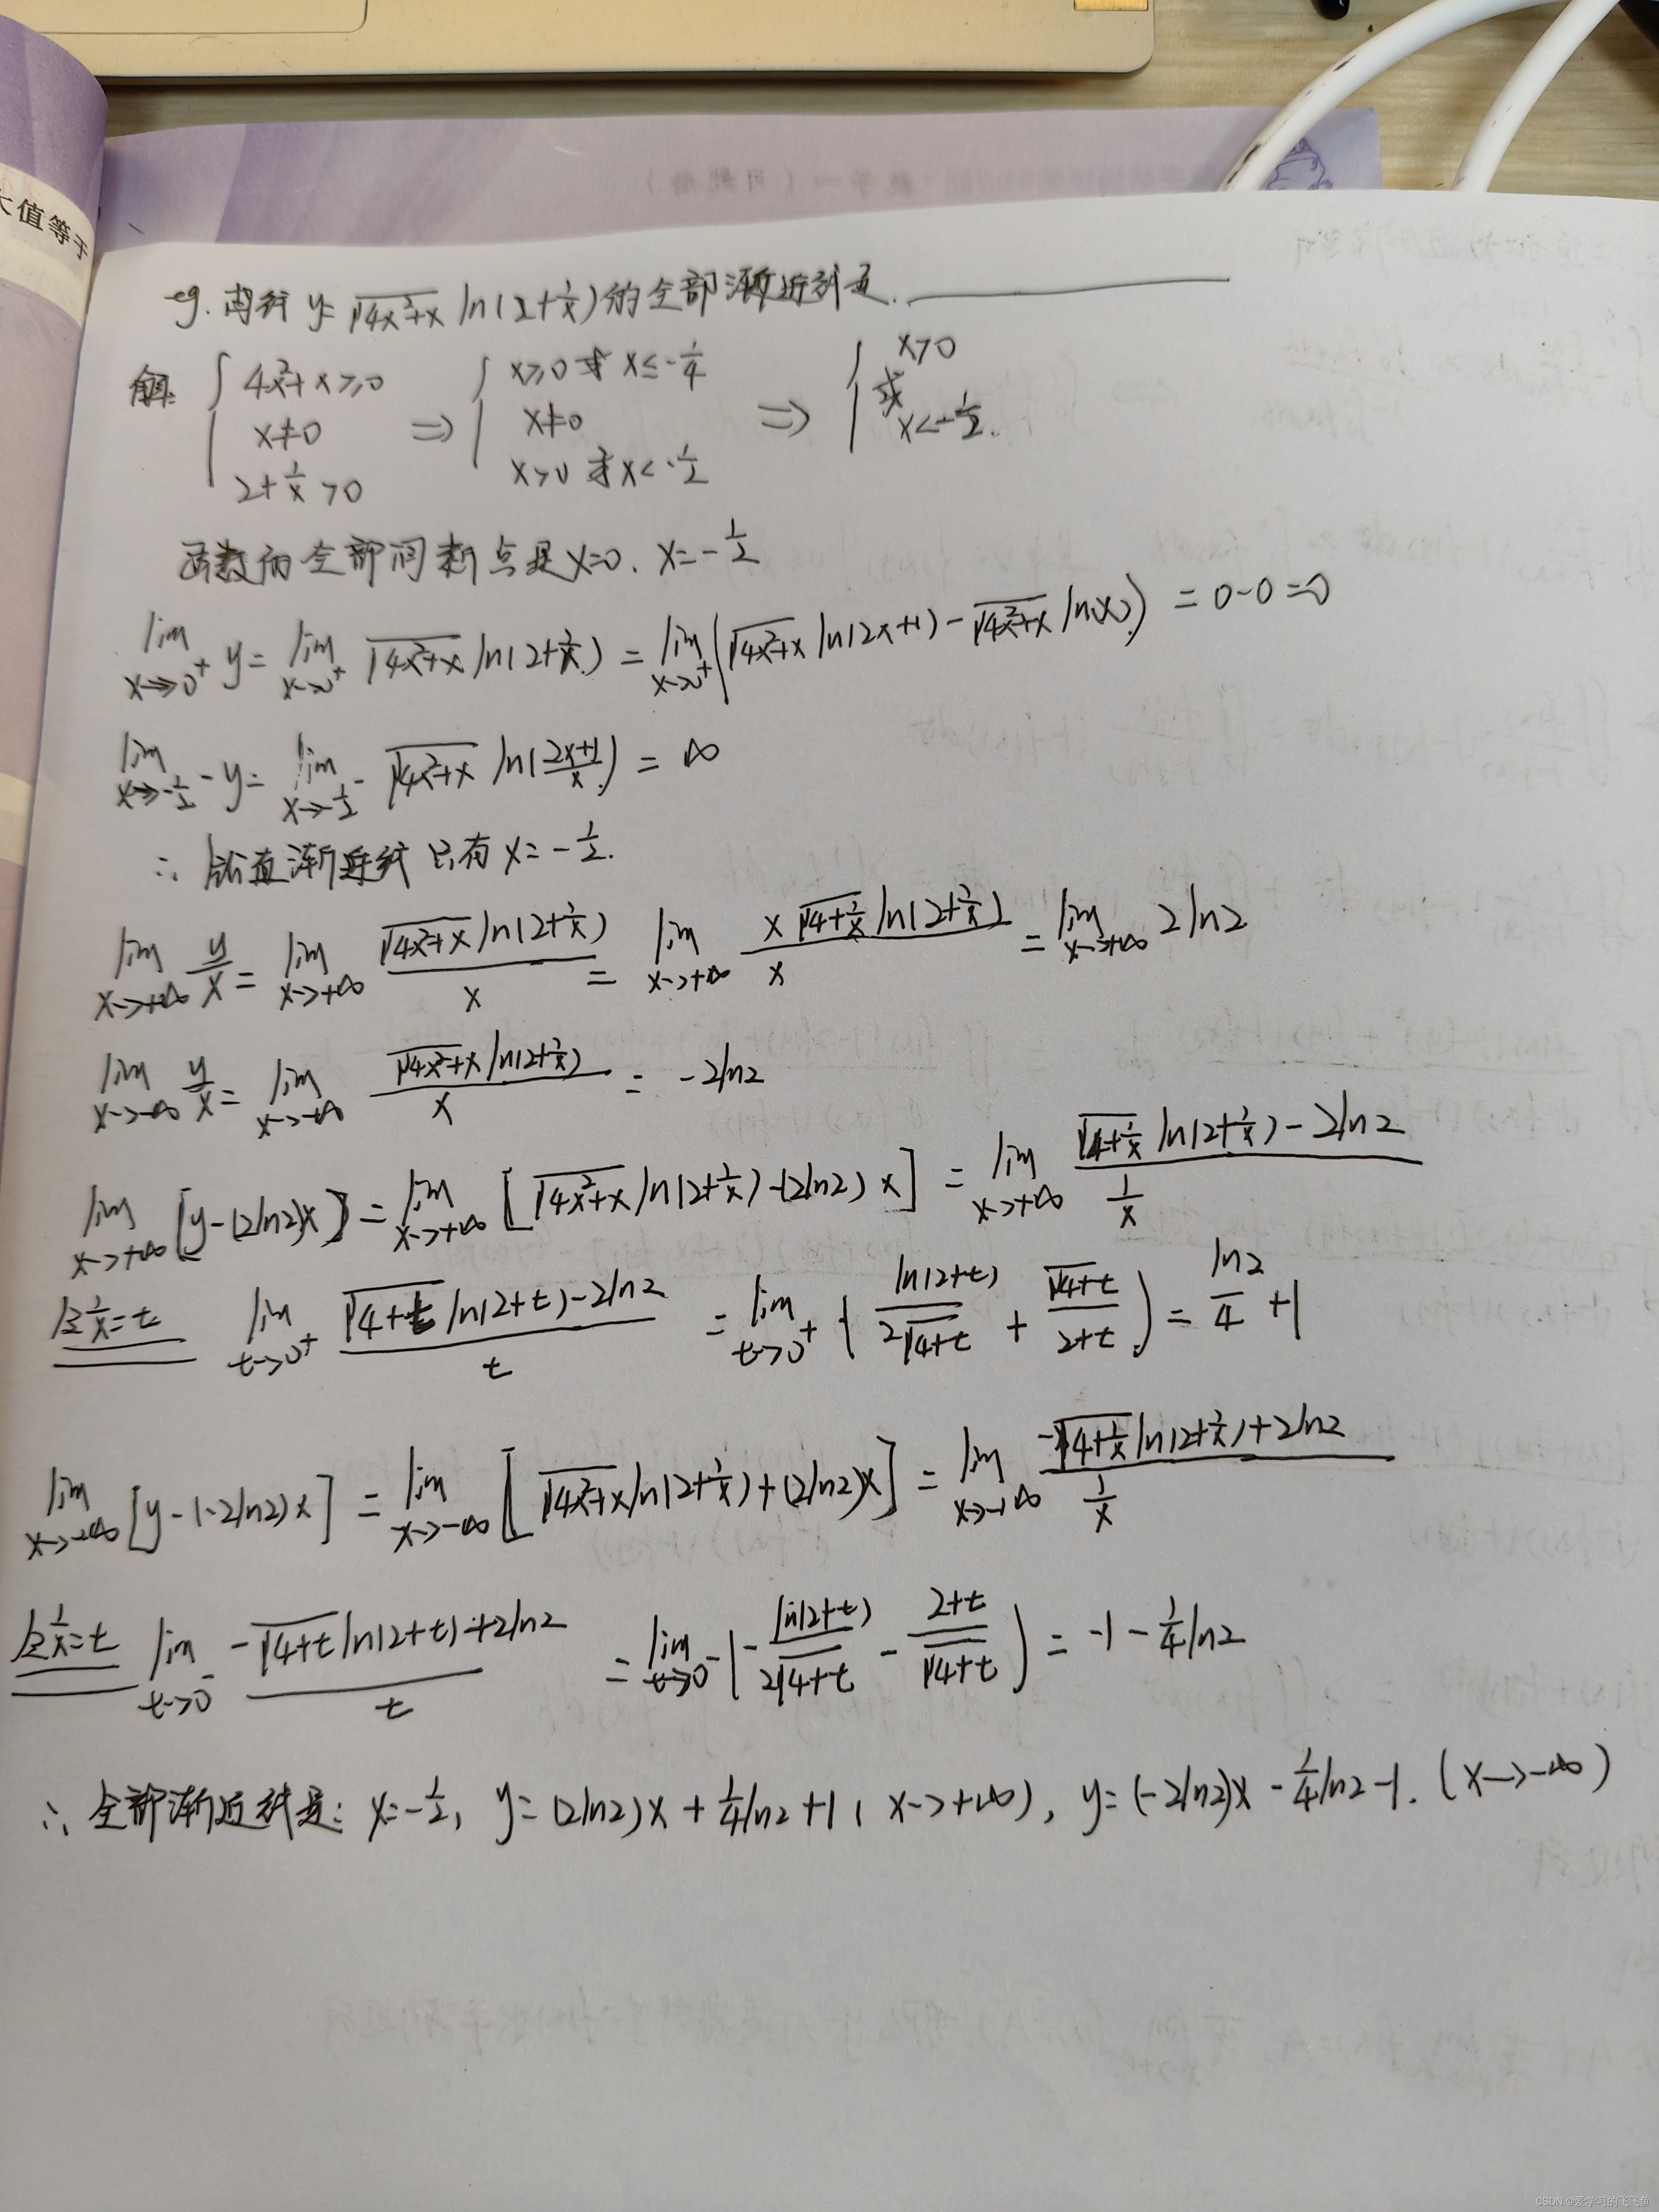 大值等于
eg. 曲线 y=√(4x²+x) ln(2+1/x)的全部渐近线是. ______
解: { 4x²+x≥0 { x≥0 或 x≤-1/4 { x>0
x≠0 ⇒ x≠0 ⇒ 或
2+1/x>0 x>0 或 x<-1/2 x<-1/2.
函数的全部间断点是x=0. x=-1/2
lim_{x→0⁺} y= lim_{x→0⁺} √(4x²+x) ln(2+1/x) = lim_{x→0⁺} (√(4x²+x) ln(2x+1) - √(4x²+x) ln(x)) = 0-0=0
lim_{x→-1/2⁻} y= lim_{x→-1/2⁻} √(4x²+x) ln((2x+1)/x) = ∞
∴ 铅直渐近线只有 x=-1/2.
lim_{x→+∞} y/x= lim_{x→+∞} (√(4x²+x) ln(2+1/x))/x = lim_{x→+∞} (x√(4+1/x) ln(2+1/x))/x = lim_{x→+∞} 2ln2
lim_{x→-∞} y/x= lim_{x→-∞} (√(4x²+x) ln(2+1/x))/x = -2ln2
lim_{x→+∞} [y-(2ln2)x] = lim_{x→+∞} [√(4x²+x) ln(2+1/x)-(2ln2)x] = lim_{x→+∞} (√(4+1/x) ln(2+1/x)-2ln2)/(1/x)
令1/x=t lim_{t→0⁺} (√(4+t) ln(2+t)-2ln2)/t = lim_{t→0⁺} (ln(2+t)/(2√(4+t)) + √(4+t)/(2+t)) = ln2/4 +1
lim_{x→-∞} [y-(-2ln2)x] = lim_{x→-∞} [√(4x²+x) ln(2+1/x)+(2ln2)x] = lim_{x→-∞} (-√(4+1/x) ln(2+1/x)+2ln2)/(1/x)
令1/x=t lim_{t→0⁻} (-√(4+t) ln(2+t)+2ln2)/t = lim_{t→0⁻} (-ln(2+t)/(2√(4+t)) - (2+t)/√(4+t)) = -1-1/4 ln2
∴ 全部渐近线是: x=-1/2, y=(2ln2)x+1/4 ln2+1 (x→+∞), y=(-2ln2)x-1/4 ln2-1. (x→-∞)
CSDN @爱学习的飞飞鱼